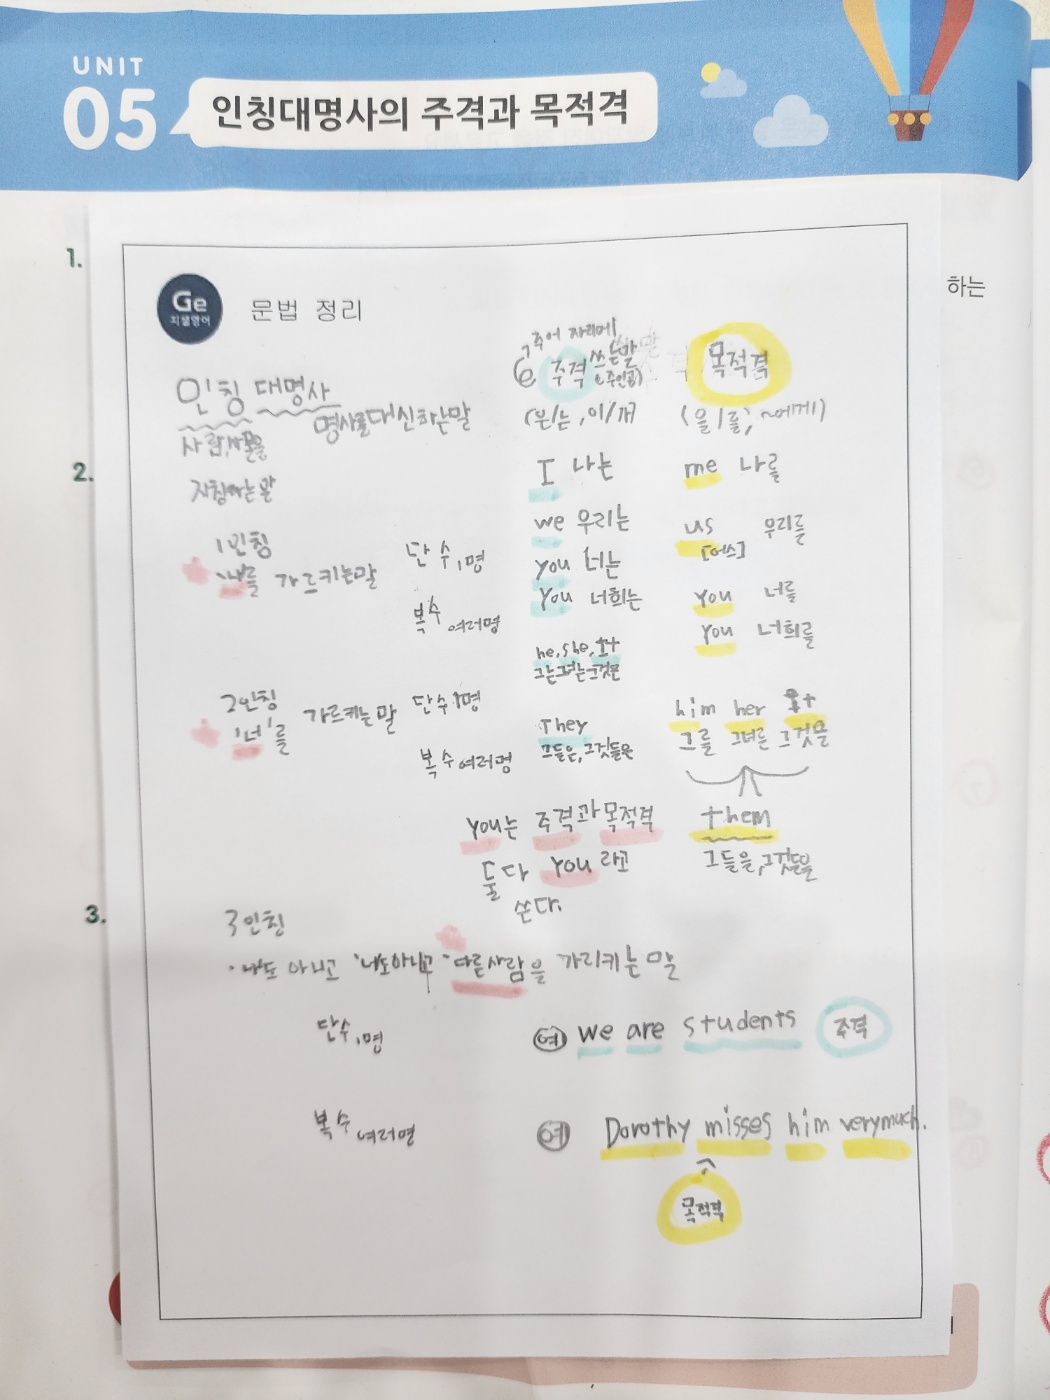 UNIT
05 인칭대명사의 주격과 목적격
1.
하는
Ge
지샘영어
문법 정리
주어 자리에
쓰는말
주격
(주인공)
목적격
(은/는, 이/가)
(을/를, ~에게)
인칭 대명사
명사를대신하는말
사람,사물을
지칭하는말
I 나는
me 나를
2.
we 우리는
us 우리를
[어스]
1인칭
'나'를 가르키는말
단수 1명
you 너는
you 너를
복수 여러명
you 너희는
you 너희를
he, she, it
그는그녀는그것은
2인칭
'너'를 가르키는말
단수 1명
him her it
그를 그녀를 그것을
복수 여러명
They
그들은,그것들은
them
그들을,그것들을
you는 주격과목적격
둘다 you 라고
쓴다.
3.
3인칭
'나'도 아니고 '너'도아니고 '다른사람'을 가리키는 말
단수 1명
예 we are students 주격
복수 여러명
예 Dorothy misses him very much.
목적격